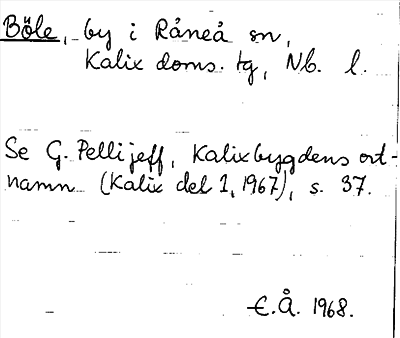 Böle, by i Råneå sn,
Kalix doms. tg, Nb. l.
Se G. Pellijeff, Kalixbygdens ort-
namn (Kalix del 1, 1967), s. 37.
E.Å. 1968.